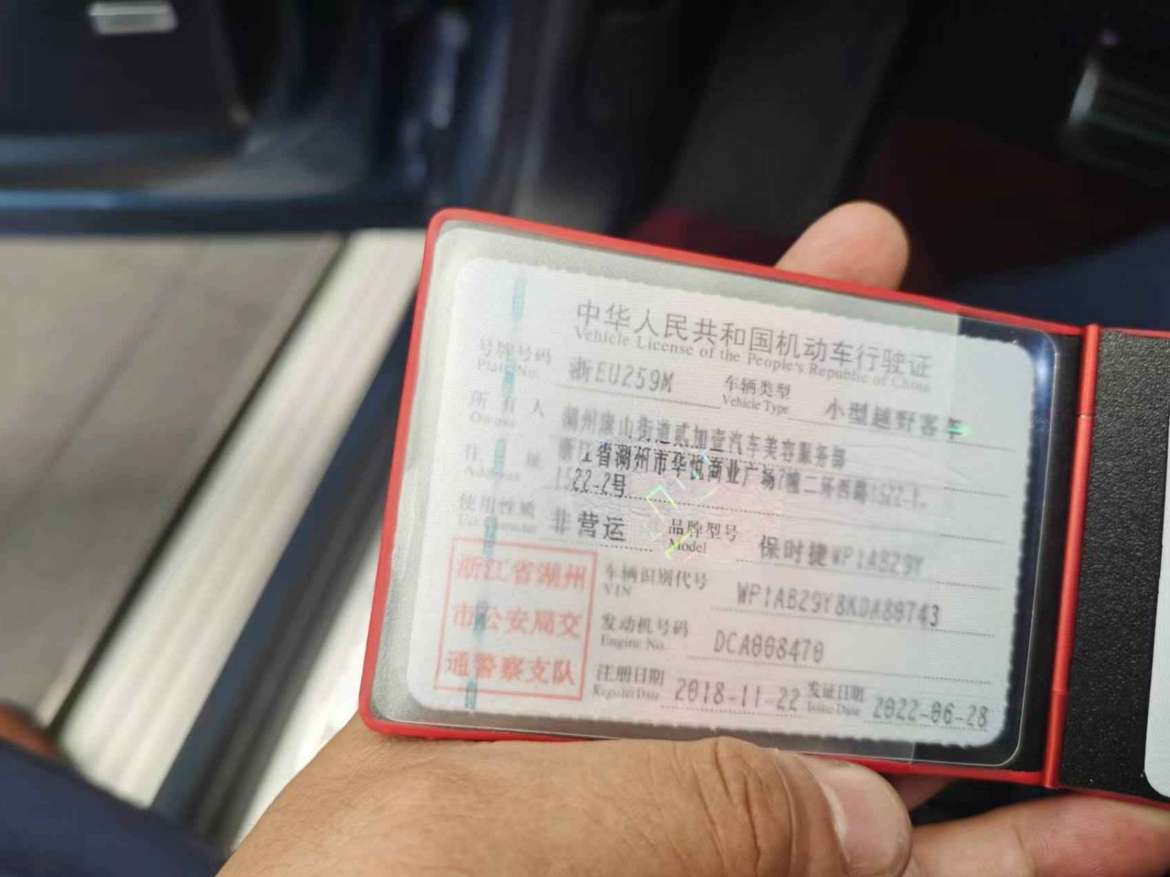 中华人民共和国机动车行驶证
Vehicle License of the People's Republic of China
号牌号码 浙EU259M 车辆类型 小型越野客车
Plate No. Vehicle Type
所有人 湖州康山街道贰加壹汽车美容服务部
Owner
住址 浙江省湖州市华悦商业广场7幢二环西路1522-1、
Address 1522-2号
使用性质 非营运 品牌型号 保时捷WP1AB29Y
Use Character Model
浙江省湖州
市公安局交
通警察支队
车辆识别代号 WP1AB29Y8KDA80743
VIN
发动机号码 DCA008470
Engine No.
注册日期 2018-11-22 发证日期 2022-06-28
Register Date Issue Date